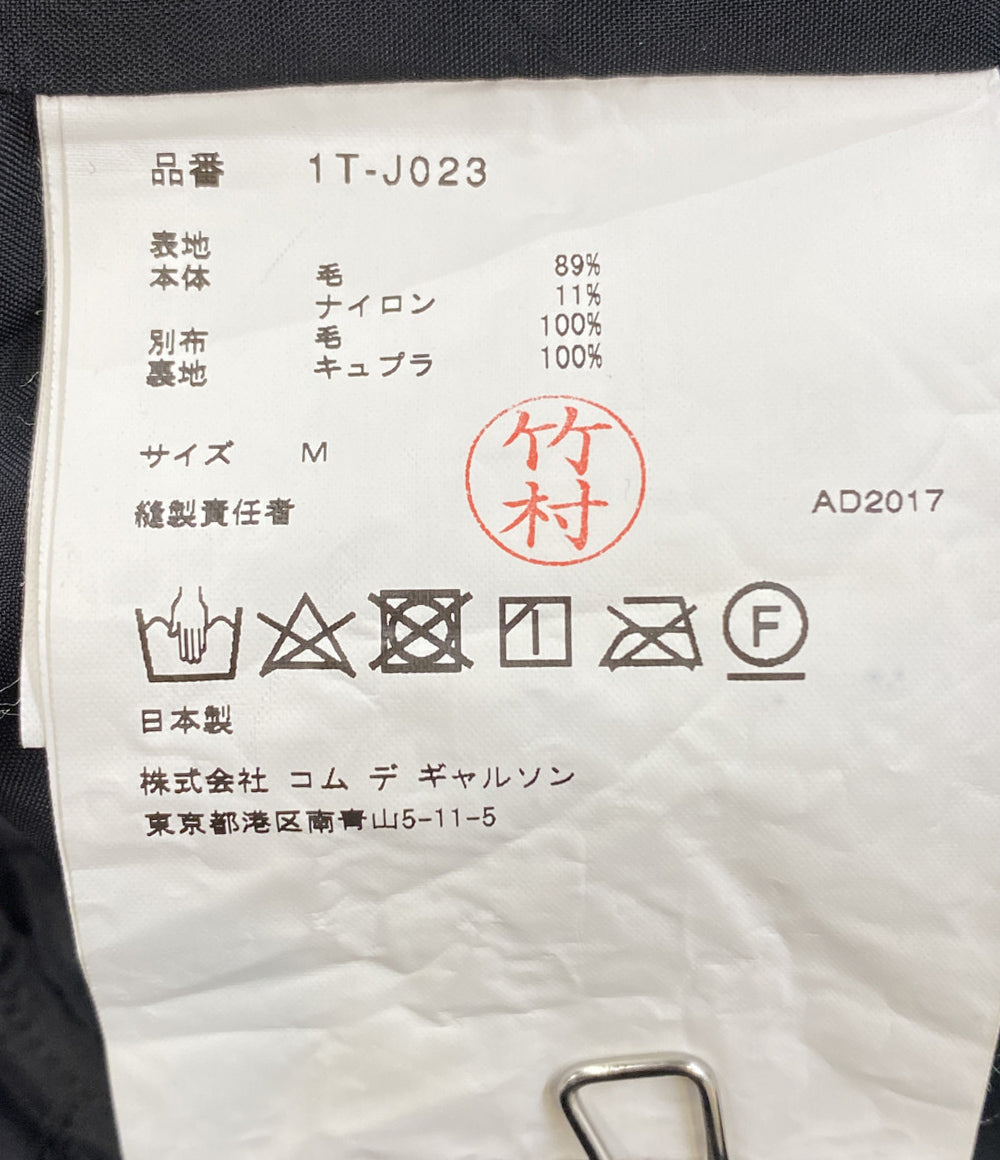 品番 1T-J023
表地
本体 毛 89%
ナイロン 11%
別布 毛 100%
裏地 キュプラ 100%
サイズ M
竹村
縫製責任者
AD2017
F
日本製
株式会社 コム デ ギャルソン
東京都港区南青山5-11-5